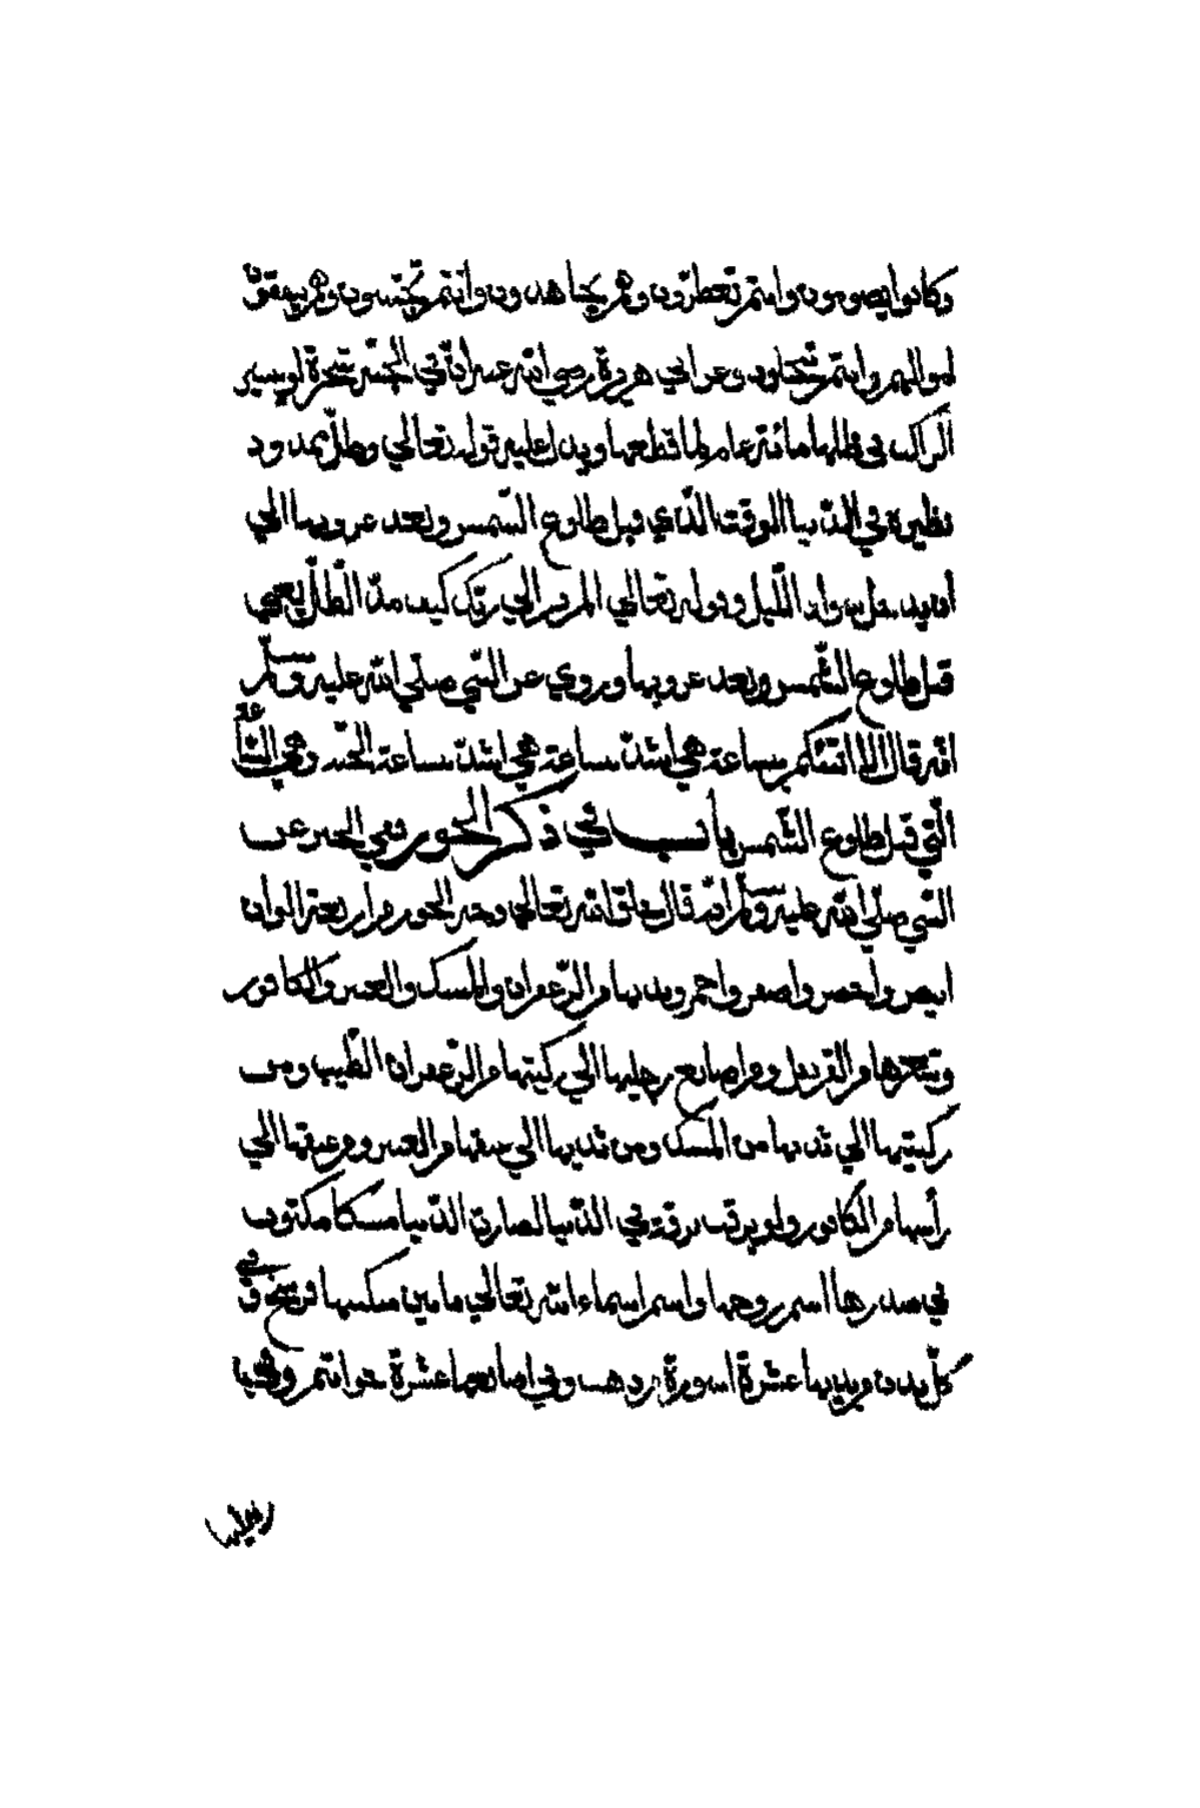 وكانوا يصومون وانتم تفطرون وهم يجاهدون وانتم تجلسون وهم ينفقون
اموالهم وانتم تبخلون وعن ابي هريرة رضي الله عنه ان في الجنّة شجرة لو يسير
الراكب في ظلها مائة عام لما قطعها ويدل عليه قوله تعالي وظلّ ممدود
نظيره في الدّنيا الوقت الّذي قبل طلوع الشّمس وبعد غروبها الي
ان يدخل سواد اللّيل وقوله تعالي الم تر الي ربّك كيف مدّ الظّلّ يعني
قبل طلوع الشّمس وبعد غروبها وروي عن النّبي صلّي الله عليه وسلّم
انّه قال الا انبئكم بساعة هي اشبه ساعة هي اشبه بساعة الجنّة وهي السّاعة
الّتي قبل طلوع الشّمس باب في ذكر الحور وفي الخبر عن
النّبي صلّي الله عليه وسلّم انّه قال خلق الله تعالي وجه الحور من اربعة الوان
ابيض واخضر واصفر واحمر وبدنها من الزّعفران والمسك والعنبر والكافور
وشعرها من القرنفل ومن اصابع رجليها الي ركبتيها من الزّعفران الطّيب ومن
ركبتيها الي ثدييها من المسك ومن ثدييها الي عنقها من العنبر ومن عنقها الي
رأسها من الكافور ولو بزقت بزقة في الدّنيا لصارت الدّنيا مسكا مكتوب
في صدرها اسم زوجها واسم اسماء الله تعالي ما بين منكبيها فرسخ وفي
كلّ يد من يديها عشرة اسورة من ذهب وفي اصابعها عشرة خواتم وفي